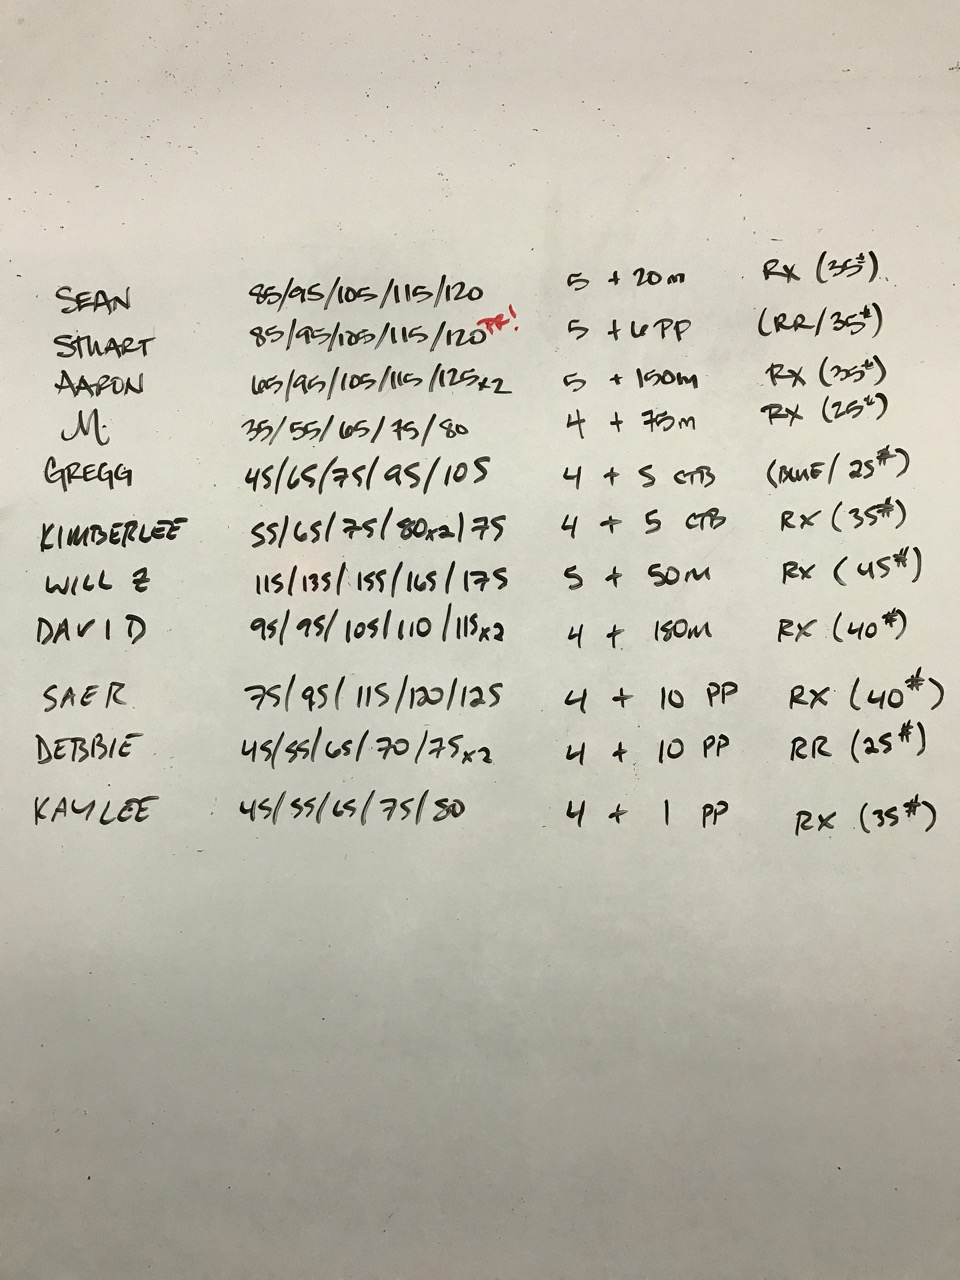 SEAN 85/95/105/115/120 5 + 20m RX (35#)
STUART 85/95/105/115/120 PR! 5 + 6 PP (RR/35#)
AARON 65/95/105/115/125x2 5 + 150m RX (35#)
M. 35/55/65/75/80 4 + 75m RX (25#)
GREGG 45/65/75/95/105 4 + 5 CTB (BLUE/25#)
KIMBERLEE 55/65/75/80x2/75 4 + 5 CTB RX (35#)
WILL Z 115/135/155/165/175 5 + 50M RX (45#)
DAVID 95/95/105/110/115x2 4 + 150M RX (40#)
SAER 75/95/115/120/125 4 + 10 PP RX (40#)
DEBBIE 45/55/65/70/75x2 4 + 10 PP RR (25#)
KAYLEE 45/55/65/75/80 4 + 1 PP RX (35#)